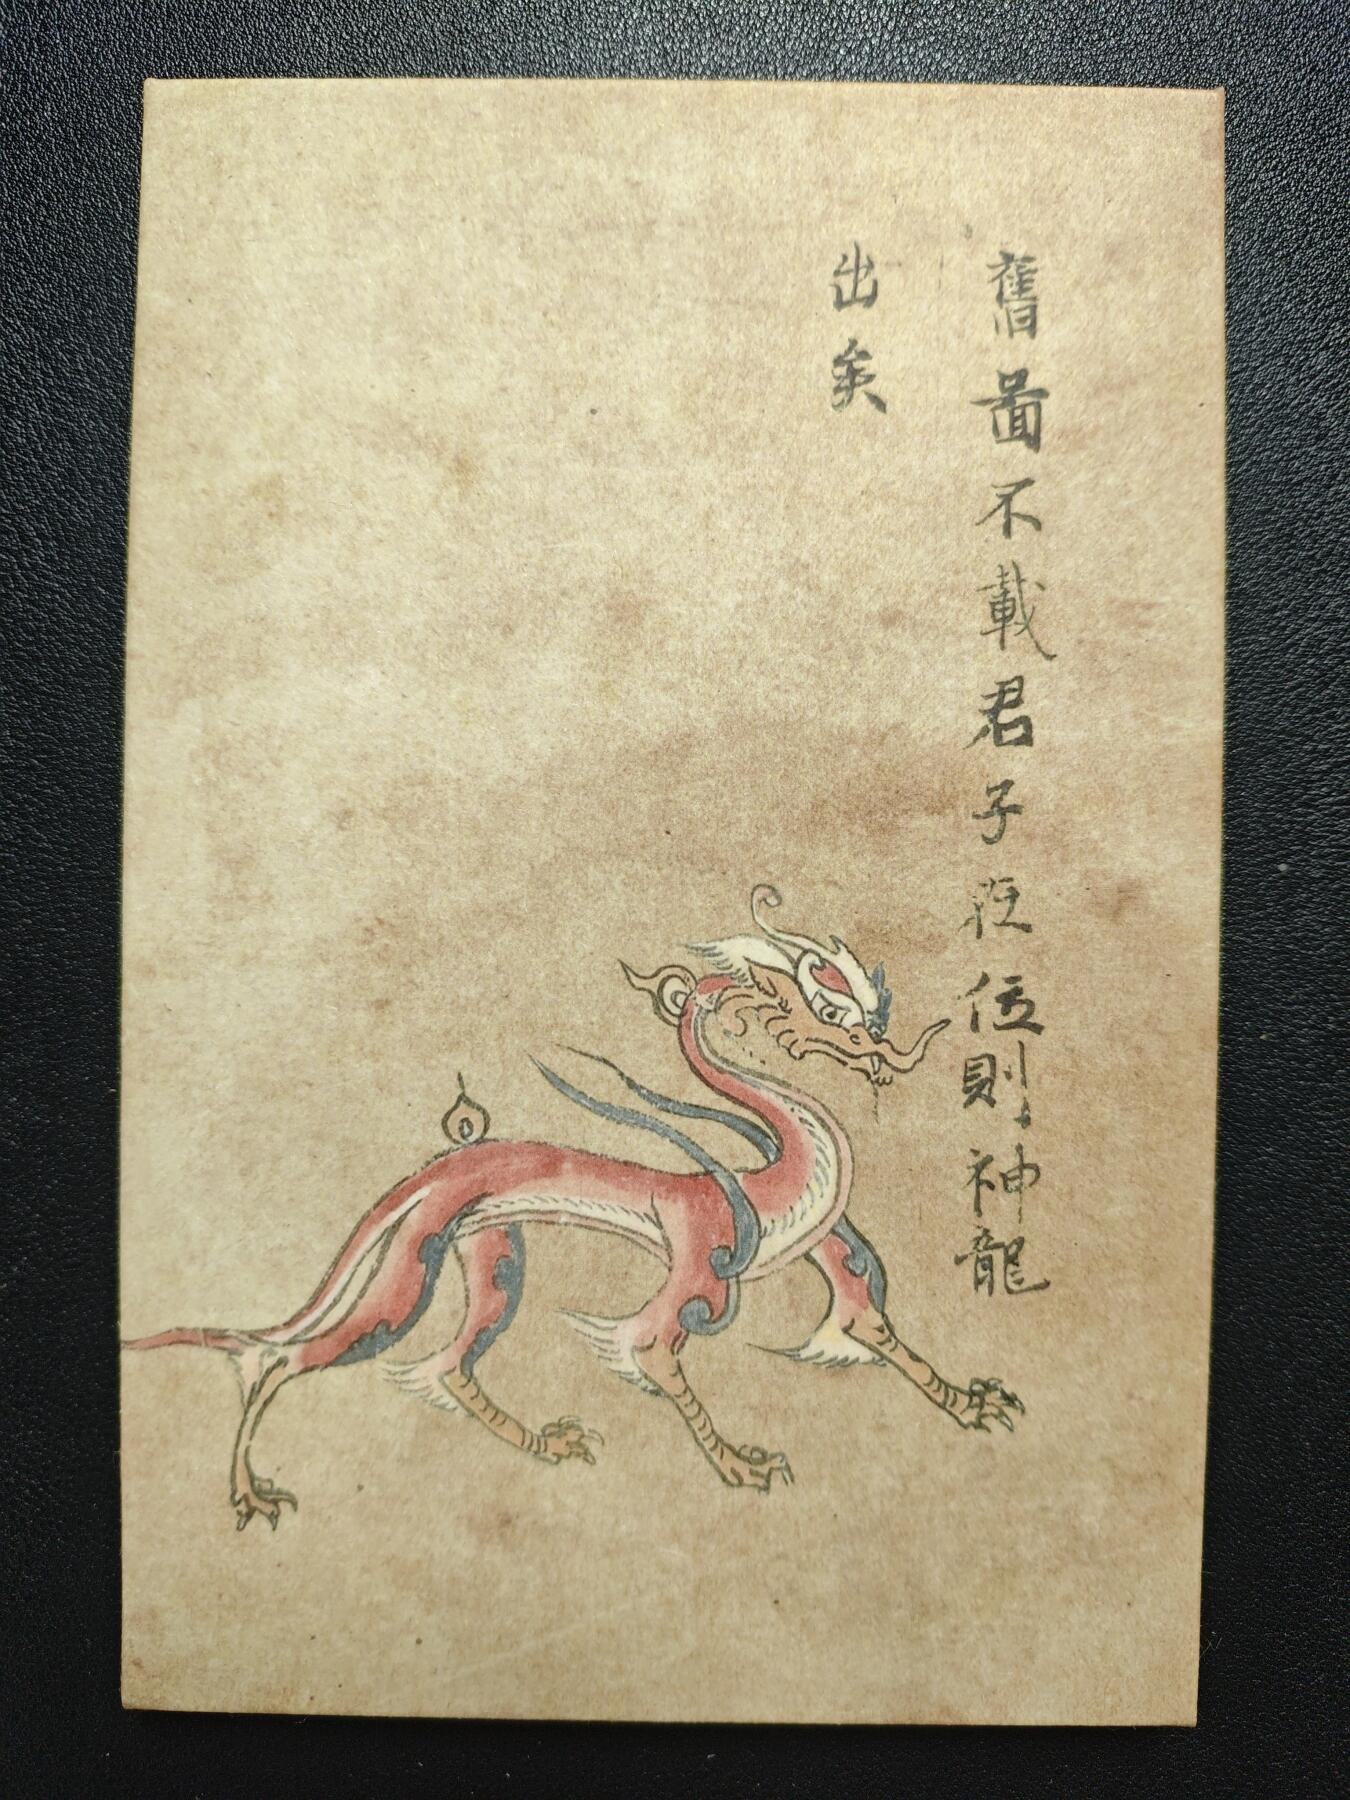 舊啚不載君子在位則神龍
出矣